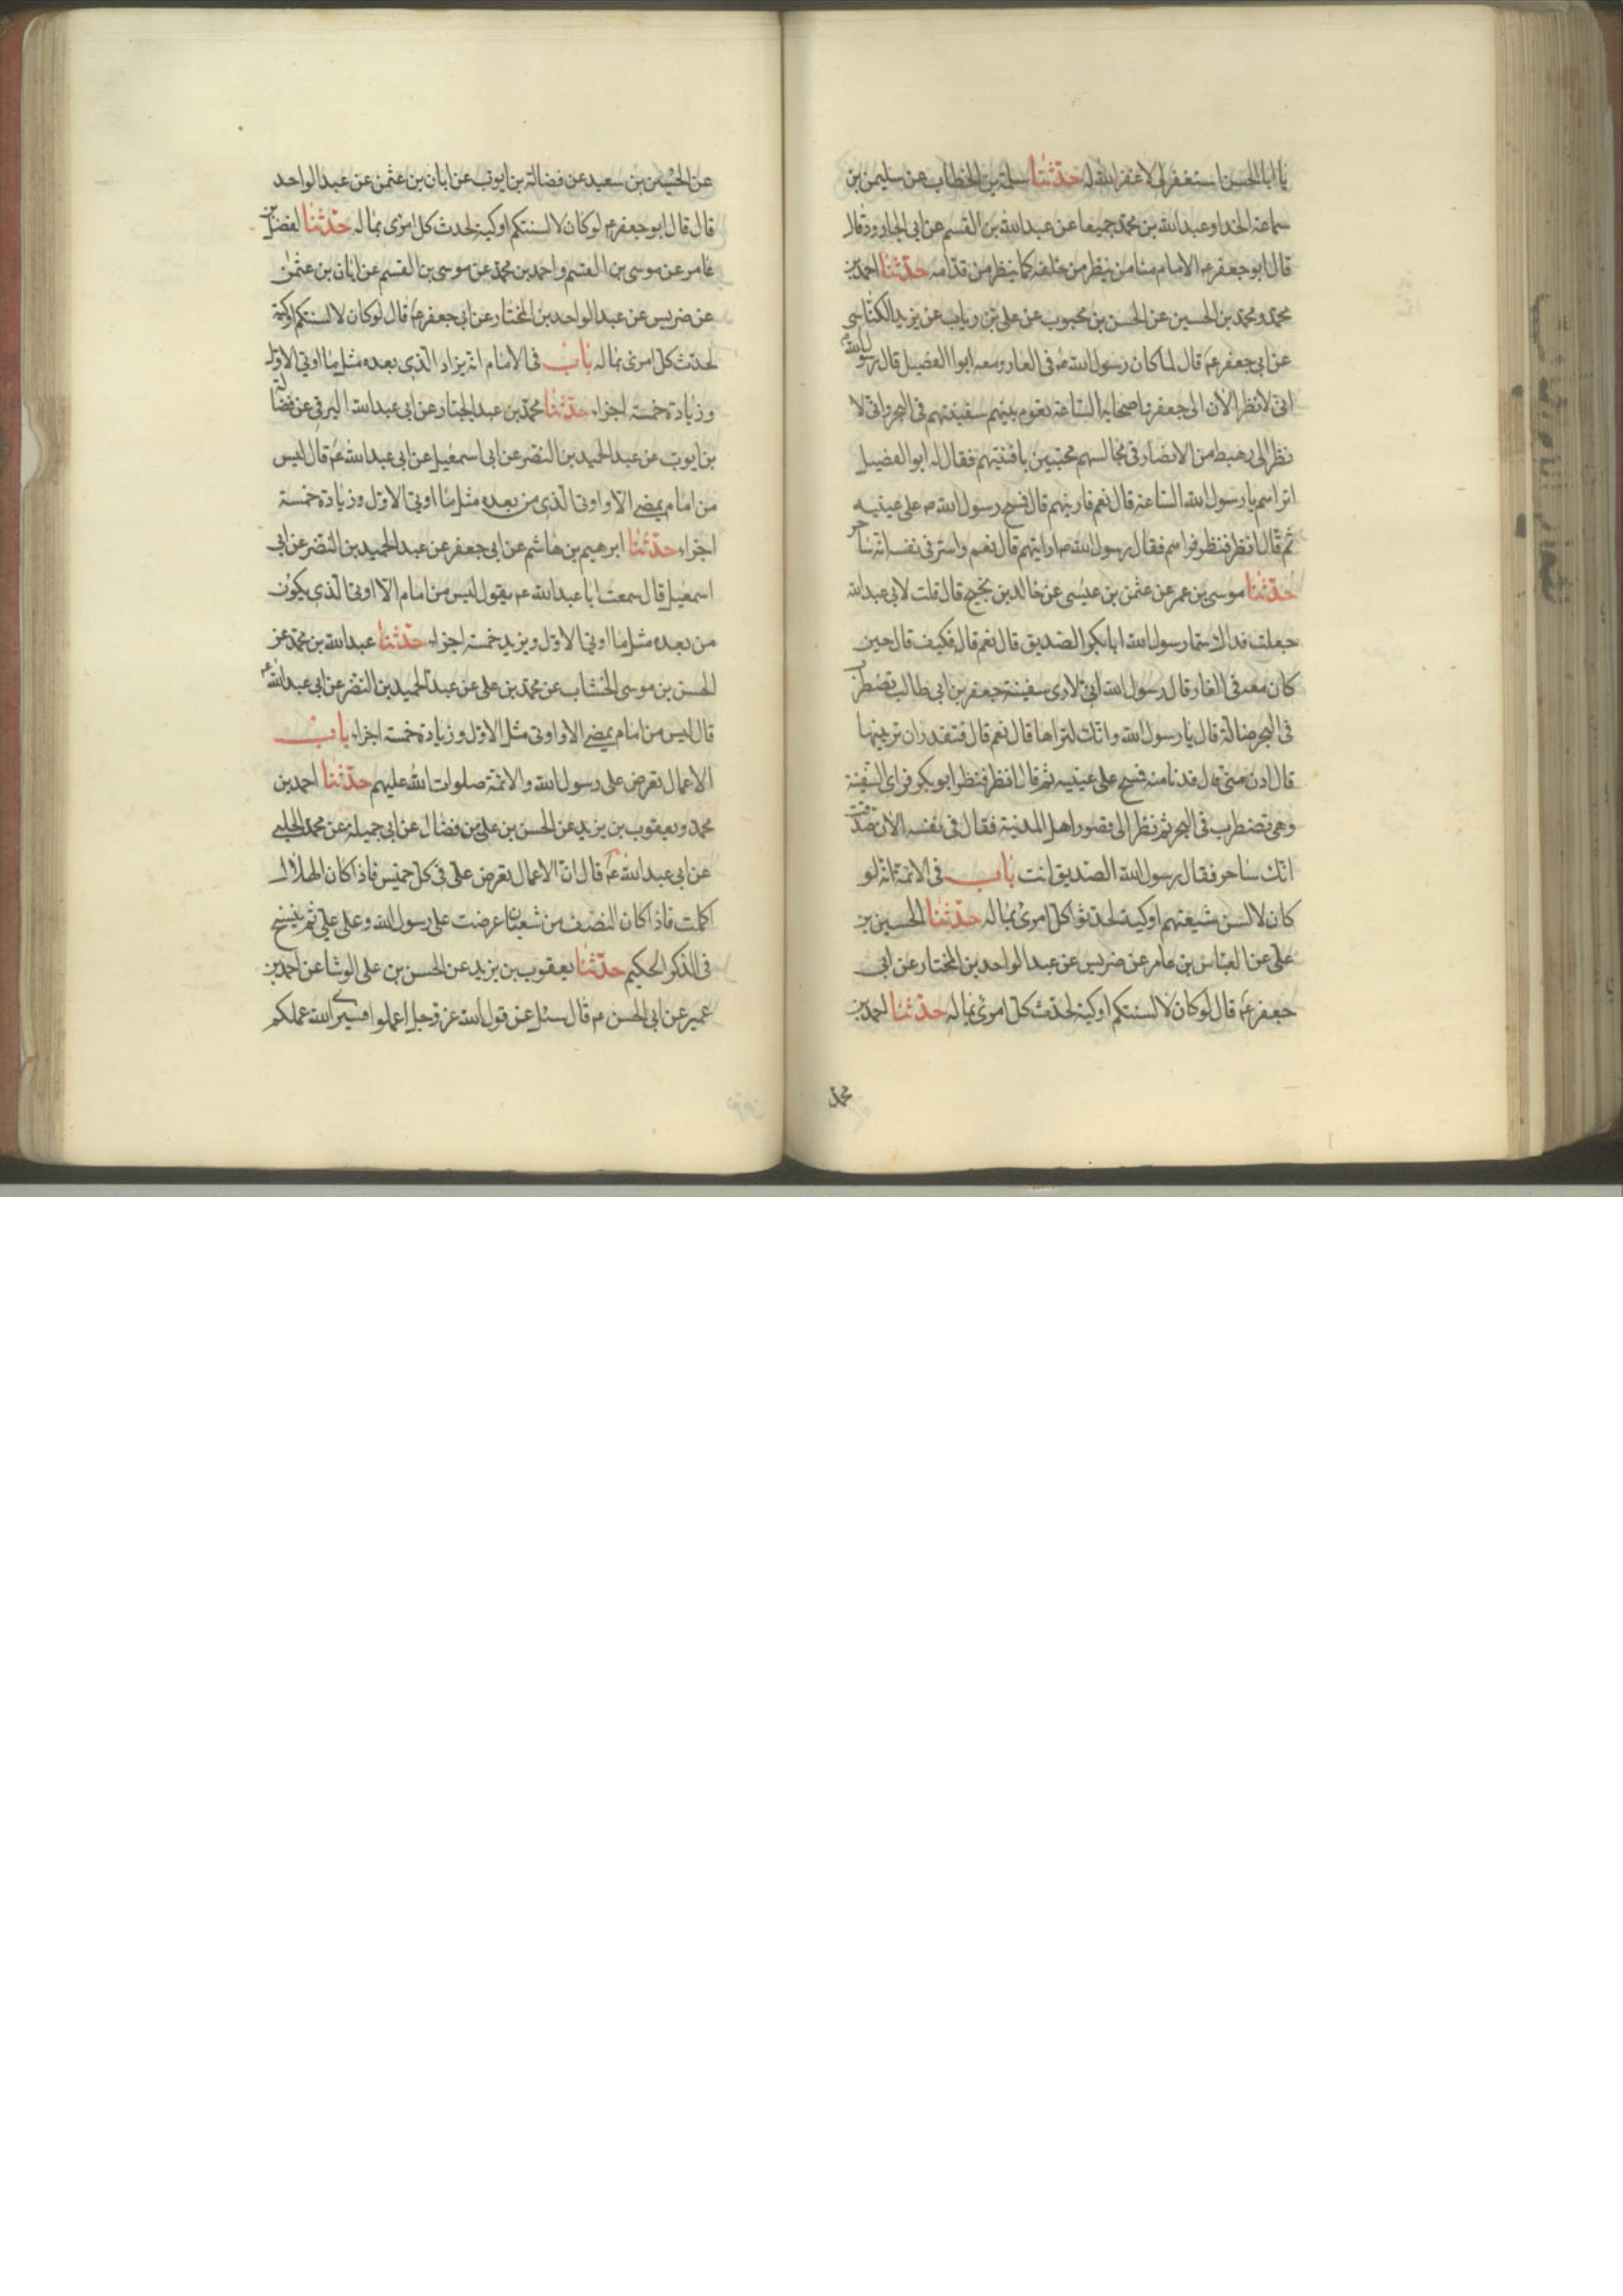 يا ابا الحسن استغفر لي لا غفر الله له حدثنا سلمة بن الخطاب عن سليمن بن
سماعة الحذا وعبدالله بن محمد جميعا عن عبدالله بن القسم عن ابي الجارود قال
قال ابو جعفر ع الامام منا من ينظر من خلفه كما ينظر من قدامه حدثنا احمد بن
محمد ومحمد بن الحسين عن الحسن بن محبوب عن علي بن رياب عن يزيد الكناسي
عن ابي جعفر ع قال لما كان رسول الله ص في الغار ومعه ابوا الفضيل قال رسول الله ص
اني لانظر الآن الى جعفر واصحابه الساعة تعوم بينهم سفينتهم في البحر واني لا
نظر الى رهط من الانصار في مجالسهم محتبين بافنيتهم فقال له ابو الفضيل
اتراهم يا رسول الله الساعة قال نعم فارينهم قال فمسح رسول الله ص على عينيه
ثم قال انظر فنظر فراهم فقال رسول الله ص ارايتهم قال نعم واسر في نفسه انه ساحر
حدثنا موسى بن عمر عن عثمن بن عيسى عن خالد بن نجيح قال قلت لابي عبدالله
جعلت فداك سما رسول الله ابابكر الصديق قال نعم قال فكيف قال حين
كان معه في الغار قال رسول الله اني لارى سفينة جعفر بن ابي طالب تضطرب
في البحر ضالة قال يا رسول الله وانك لتراها قال نعم قال فتقدر ان ترينيها
قال ادن مني قال فدنا منه فمسح على عينيه ثم قال انظر فنظر ابو بكر فراى السفينة
وهي تضطرب في البحر ثم نظر الى قصور اهل المدينة فقال في نفسه الآن صدقت
انك ساحر فقال رسول الله الصديق انت باب في الائمة انه لو
كان لالسن شيعتهم اوكية لحدثوا كل امرئ بما له حدثنا الحسين بن
علي عن العباس بن عامر عن ضريس عن عبد الواحد بن المختار عن ابي
جعفر ع قال لو كان لالسنتكم اوكية لحدث كل امرئ بما له حدثنا احمد بن
محمد
عن الحسين بن سعيد عن فضالة بن ايوب عن ابان بن عثمن عن عبد الواحد
قال قال ابو جعفر ع لو كان لالسنتكم اوكية لحدث كل امرئ بما له حدثنا الفضل بن
عامر عن موسى بن القسم واحمد بن محمد عن موسى بن القسم عن ابان بن عثمن
عن ضريس عن عبد الواحد بن المختار عن ابي جعفر ع قال لو كان لالسنتكم اوكية
لحدث كل امرئ بما له باب في الامام انه يزاد الذي بعده مثل ما اوتي الاول
وزيادة خمسة اجزاء حدثنا محمد بن عبد الجبار عن ابي عبدالله البرقي عن فضالة
بن ايوب عن عبد الحميد بن النضر عن ابي اسمعيل عن ابي عبدالله ع قال ليس
من امام يمضي الا واوتي الذي من بعده مثل ما اوتي الاول وزيادة خمسة
اجزاء حدثنا ابرهيم بن هاشم عن ابي جعفر عن عبد الحميد بن النضر عن ابي
اسمعيل قال سمعت ابا عبدالله ع يقول ليس من امام الا اوتي الذي يكون
من بعده مثل ما اوتي الاول ويزيد خمسة اجزاء حدثنا عبدالله بن محمد عن
الحسن بن موسى الخشاب عن محمد بن علي عن عبد الحميد بن النضر عن ابي عبدالله ع
قال ليس من امام يمضي الا واوتي مثل الاول وزيادة خمسة اجزاء باب
الاعمال تعرض على رسول الله والائمة صلوات الله عليهم حدثنا احمد بن
محمد ويعقوب بن يزيد عن الحسن بن علي بن فضال عن ابي جميلة عن محمد الحلبي
عن ابي عبدالله ع قال ان الاعمال تعرض علي في كل خميس فاذا كان الهلال
اكملت فاذا كان النصف من شعبان عرضت على رسول الله وعلى علي ثم ينسخ
في الذكر الحكيم حدثنا يعقوب بن يزيد عن الحسن بن علي الوشا عن احمد بن
عمير عن ابي الحسن ع قال سئل عن قول الله عز وجل اعملوا فسيرى الله عملكم